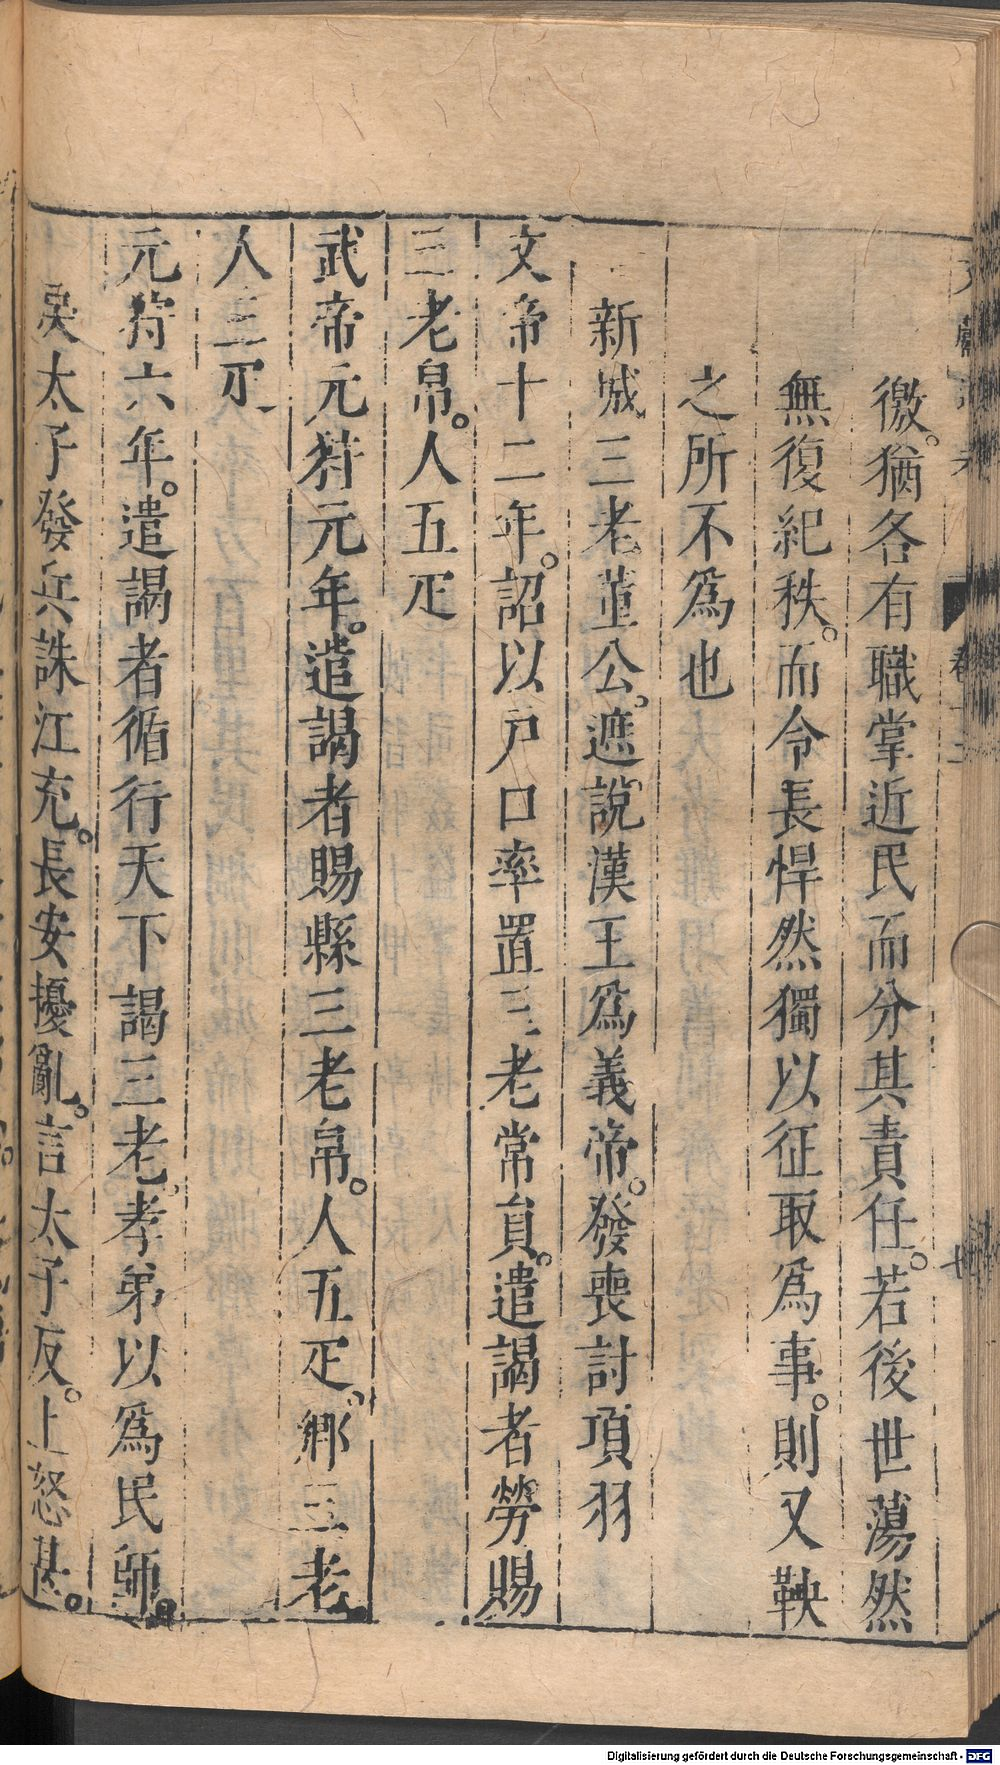 徼。猶各有職掌近民而分其責任。若後世蕩然
無復紀秩。而令長悍然獨以征取為事。則又鞅
之所不為也
新城三老董公。遮說漢王為義帝。發喪討項羽
文帝十二年。詔以户口率置三老常員。遣謁者勞賜
三老帛。人五疋
武帝元狩元年。遣謁者賜縣三老帛。人五疋。鄉三老
人三疋
元狩六年。遣謁者循行天下謁三老。孝弟以為民師。
戾太子發兵誅江充。長安擾亂。言太子反。上怒甚。
Digitalisierung gefördert durch die Deutsche Forschungsgemeinschaft - DFG